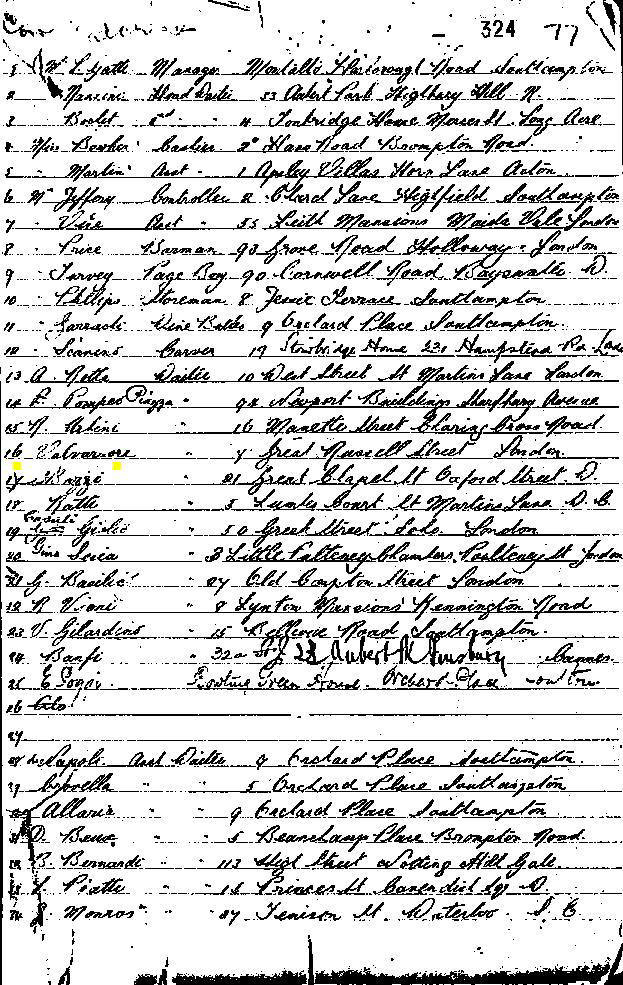 324 77
1 Mr L Gatti Manager Montalto Harborough Road Southampton
2 " Nannini Head Waiter 53 Aubert Park Highbury Hill N.
3 " Bochet 2nd " 4 Tonbridge House Long Acre
4 Miss Bowker Cashier 2a Hans Road Brompton Road.
5 " Martin Asst " 1 Apsley Villas Horn Lane Acton
6 Mr Jeffery Controller 2 Lane Highfield Southampton
7 " Vine Asst " 55 Leith Mansions Maida Vale London
8 " Price Barman 93 Grove Road Holloway London
9 " Turvey Page Boy 90 Cornwall Road Bayswater W.
10 " Phillips Storeman 8 Jessie Terrace Southampton
11 " Wine Butler 9 Orchard Place Southampton.
12 " Scavino Carver 19 House 231 Hampstead Rd
13 A. Rotta Waiter 10 West Street St Martins Lane London
14 Pompeo Piazza " 92 Newport Buildings Shaftsbury Avenue
15 " 16 Manette Street Charing Cross Road.
16 " 7 Great Russell Street London
17 " 21 Great Chapel St Oxford Street W.
18 Ratti " 5 Lumber Court St Martins Lane W.C.
19 " 50 Greek Street Soho London
20 " 3 Little Pulteney Chambers Pulteney St London
21 G. Basilico " 27 Old Compton Street London
22 R Vioni " 8 Lynton Mansions Kennington Road
23 V. Gilardino " 15 Bellevue Road Southampton.
24 Banfi " 32a 28 Aubert Pk Finsbury
25 House Orchard Place
26
27
28 Asst Waiter 9 Orchard Place Southampton.
29 Crovella " " 5 Orchard Place Southampton
Allaria " " 9 Orchard Place Southampton.
D. Beux " " 5 Beauchamp Place Brompton Road
B. Bernardi " " 113 High Street Notting Hill Gate.
L. Piatti " " 15 Princes St Cavendish Sqr W.
J. Monros " " 27 Tenison St. Waterloo. S.E.